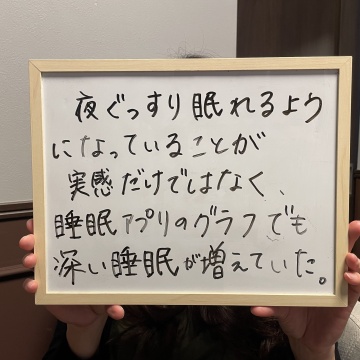 夜ぐっすり眠れるよう
になっていることが
実感だけではなく、
睡眠アプリのグラフでも
深い睡眠が増えていた。